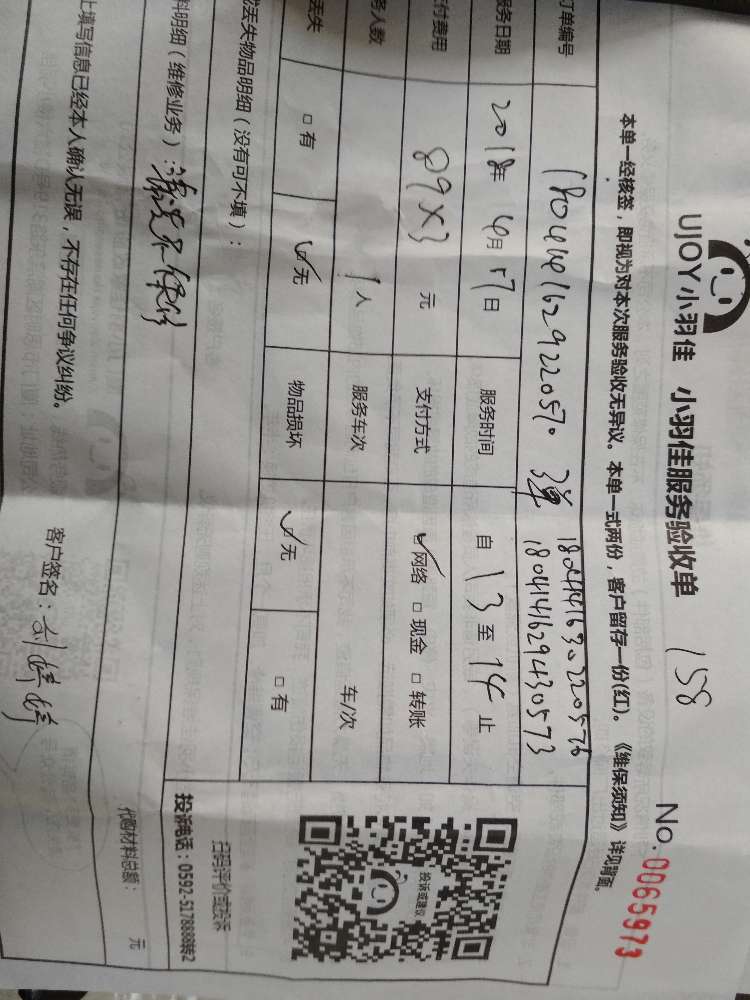 UJOY小羽佳 小羽佳服务验收单 158 No.0065973
本单一经核签，即视为对本次服务验收无异议。本单一式两份，客户留存一份(红)。《维保须知》详见背面。
订单编号 3单 180414163022057
1804141629430573
服务日期 2018年 4月 17日 服务时间 自 13 至 14 止
付费用 89×3 元 支付方式 网络 □ 现金 □ 转账
务人数 1人 服务车次 车/次
丢失 □有 无 物品损坏 无 □有
或丢失物品明细（没有可不填）：
投诉或建议
扫码评价或投诉
投诉电话：0592-5178888转2
料明细（维修业务）：清洗不保修
代购材料总额： 元
上填写信息已经本人确认无误，不存在任何争议纠纷。
客户签名：刘婷婷